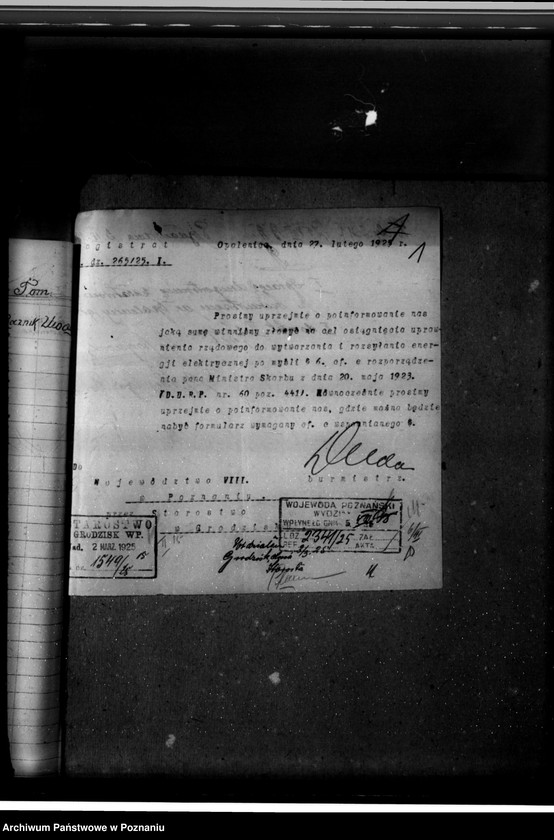 Magistrat
Opalenica, dnia 27. lutego 1925 r.
1
dz. 265/25. I.
Pom.
Prosimy uprzejmie o poinformowanie nas
jaką sumę winniśmy złożyć na cel osiągnięcia upraw-
nienia rządowego do wytwarzania i rozsyłania ener-
gji elektrycznej po myśli § 6. cf. e rozporządze-
nia pana Ministra Skarbu z dnia 20. maja 1923.
/D.U.R.P. nr. 60 poz. 441/. Równocześnie prosimy
uprzejmie o poinformowanie nas, gdzie można będzie
nabyć formularz wymagany cf. c wspomnianego §.
burmistrz.
Do
Województwo VIII.
w Poznaniu.
przez Starostwo
w Grodzisk
STAROSTWO
GRODZISK WP.
2 MAR. 1925
1549/25
WOJEWODA POZNAŃSKI
WYDZ.
WPŁYNĘŁO DNIA
LDZ 2341/25 ZAŁ.
REF. AKTA
Starosta
Archiwum Państwowe w Poznaniu